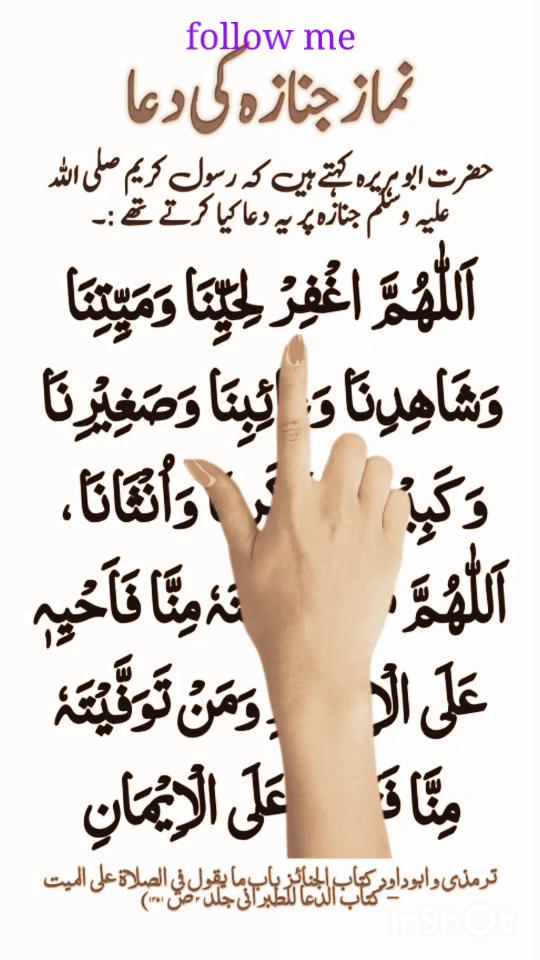 follow me
نماز جنازہ کی دعا
حضرت ابو ہریرہ کہتے ہیں کہ رسول کریم صلی اللہ
علیہ وسلم جنازہ پر یہ دعا کیا کرتے تھے :۔
اَللّٰهُمَّ اغْفِرْ لِحَيِّنَا وَمَيِّتِنَا
وَشَاهِدِنَا وَصَغِيْرِنَا
وَاُنْثَانَا،
اَللّٰهُمَّ مِنَّا فَاَحْيِهٖ
عَلَى وَمَنْ تَوَفَّيْتَهٗ
مِنَّا عَلَى الْاِيْمَانِ
ترمذی و ابوداود کتاب الجنائز باب ما یقول فی الصلاة علی المیت
– کتاب الدعا للطبرانی جلد ۳ ص ۱۳۵۱)
InShOt